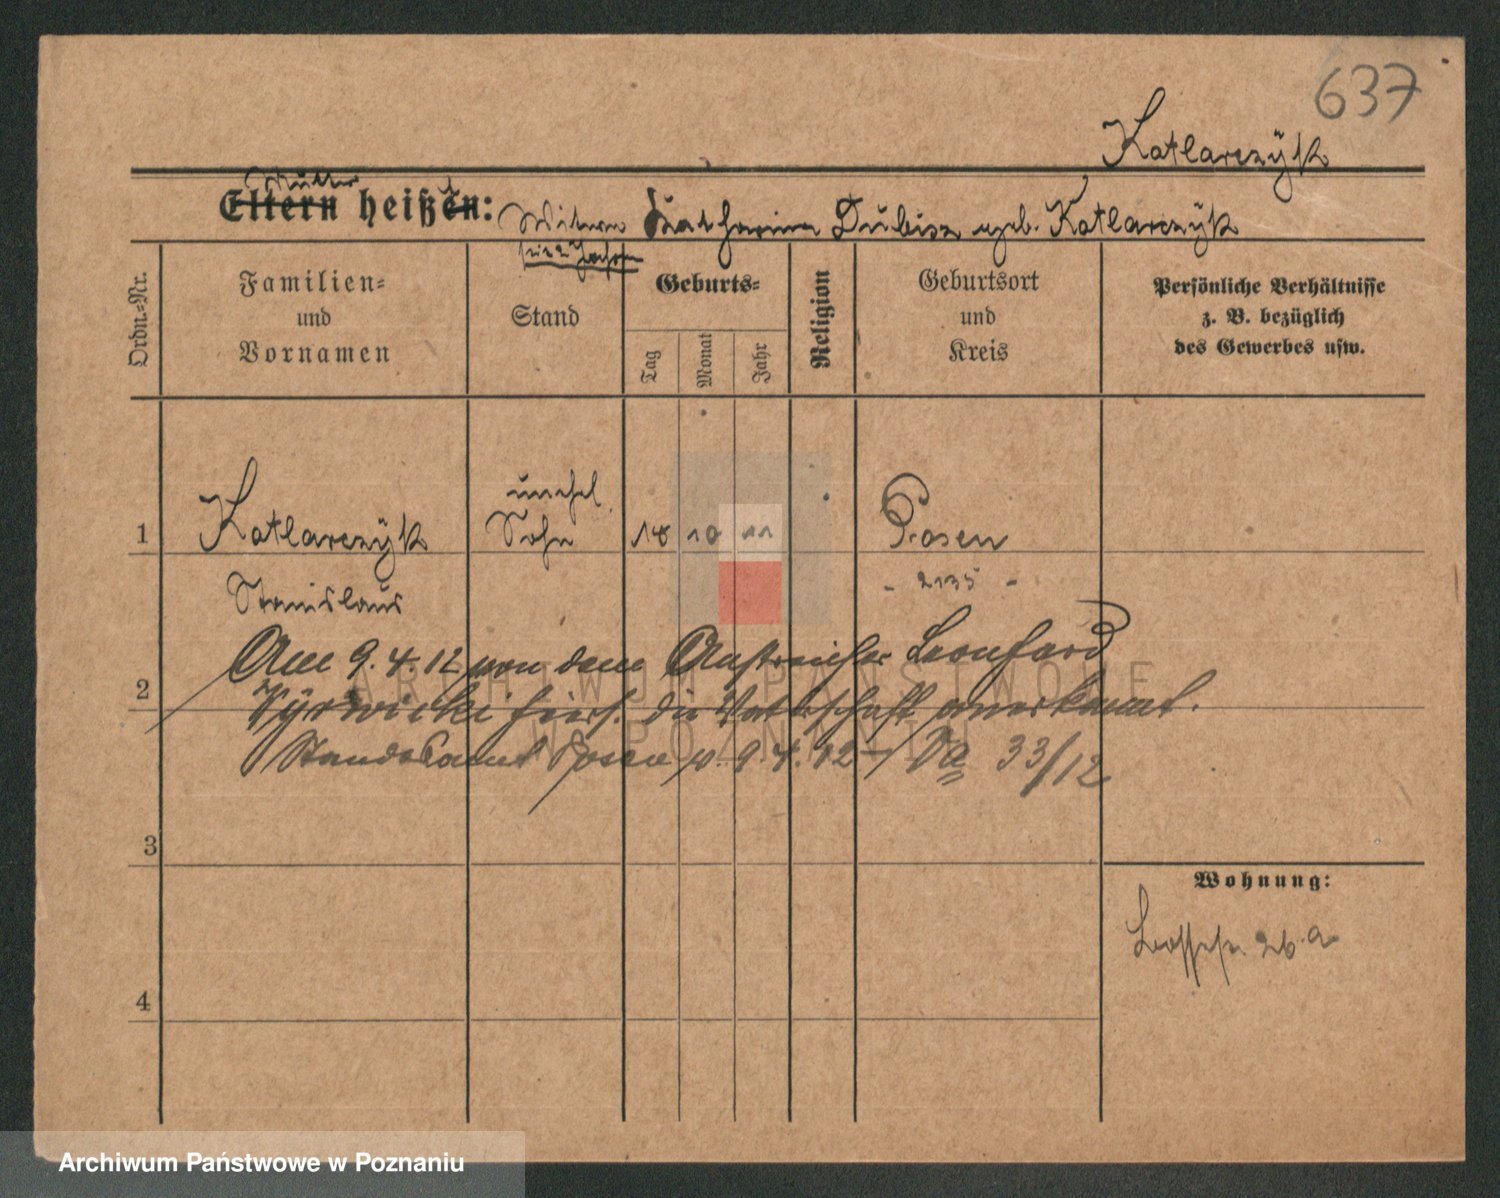 637
Katlarczÿk
Mutter
Eltern heißen:
Witwe Katharina Dubisz geb. Katlarczÿk
Ordn.-Nr.
Familien-
und
Vornamen
Stand
Geburts-
Tag
Monat
Jahr
Religion
Geburtsort
und
Kreis
Persönliche Verhältnisse
z. B. bezüglich
des Gewerbes usw.
1
Katlarczÿk
unehel.
Sohn
18 10 11
Posen
Stanislaus
- 2135 -
Am 9. 4. 12 von dem Anstreicher Leonhard
2
hiers. die Vaterschaft anerkannt.
Standesamt Posen v. 9. 4. 12 33/12
ARCHIWUM PAŃSTWOWE
W POZNANIU
3
Wohnung:
26 a
4
Archiwum Państwowe w Poznaniu